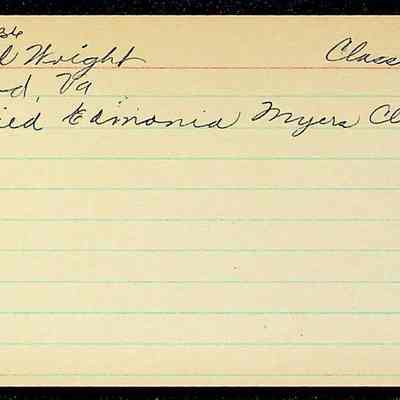 36
Wright Class
Va
Edmonia Myers Cl